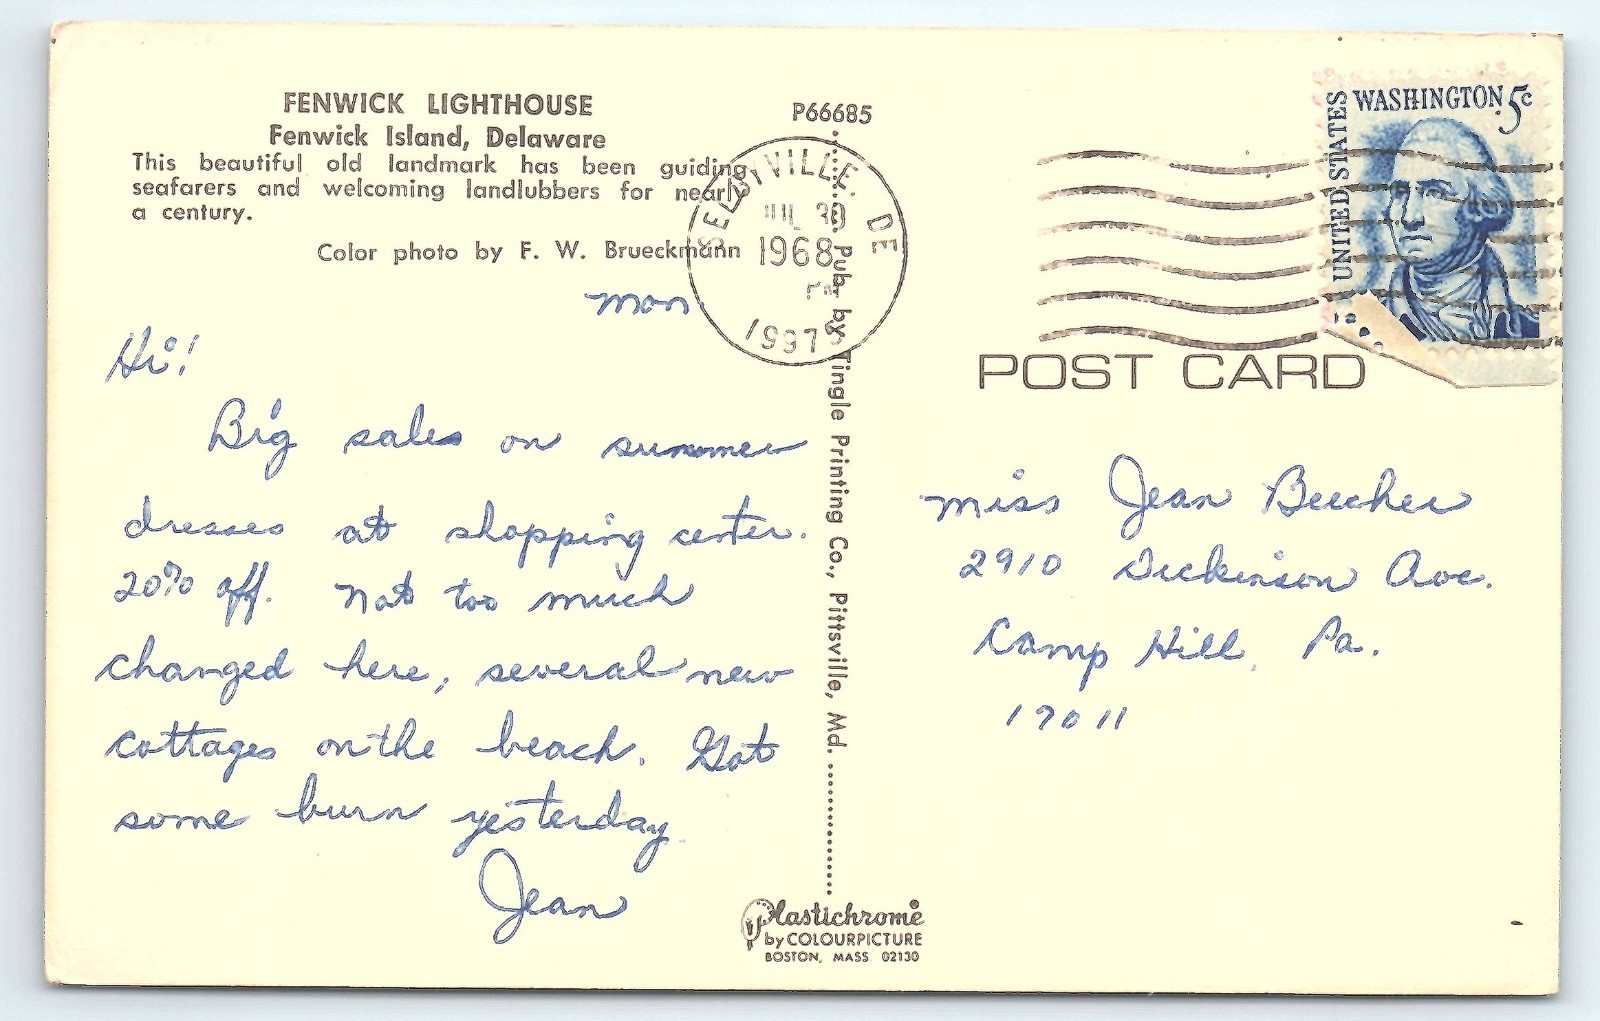 FENWICK LIGHTHOUSE
Fenwick Island, Delaware
This beautiful old landmark has been guiding
seafarers and welcoming landlubbers for nearly
a century.
Color photo by F. W. Brueckmann
P66685
SELBYVILLE, DE
JUL 30
1968
19975
UNITED STATES
WASHINGTON 5c
Mon.
Hi!
Big sales on summer
dresses at shopping center.
20% off. Not too much
changed here, several new
cottages on the beach. Got
some burn yesterday
Jean
Pub. by Tingle Printing Co., Pittsville, Md.
POST CARD
Miss Jean Beecher
2910 Dickinson Ave.
Camp Hill, Pa.
17011
Plastichrome
by COLOURPICTURE
BOSTON, MASS. 02130